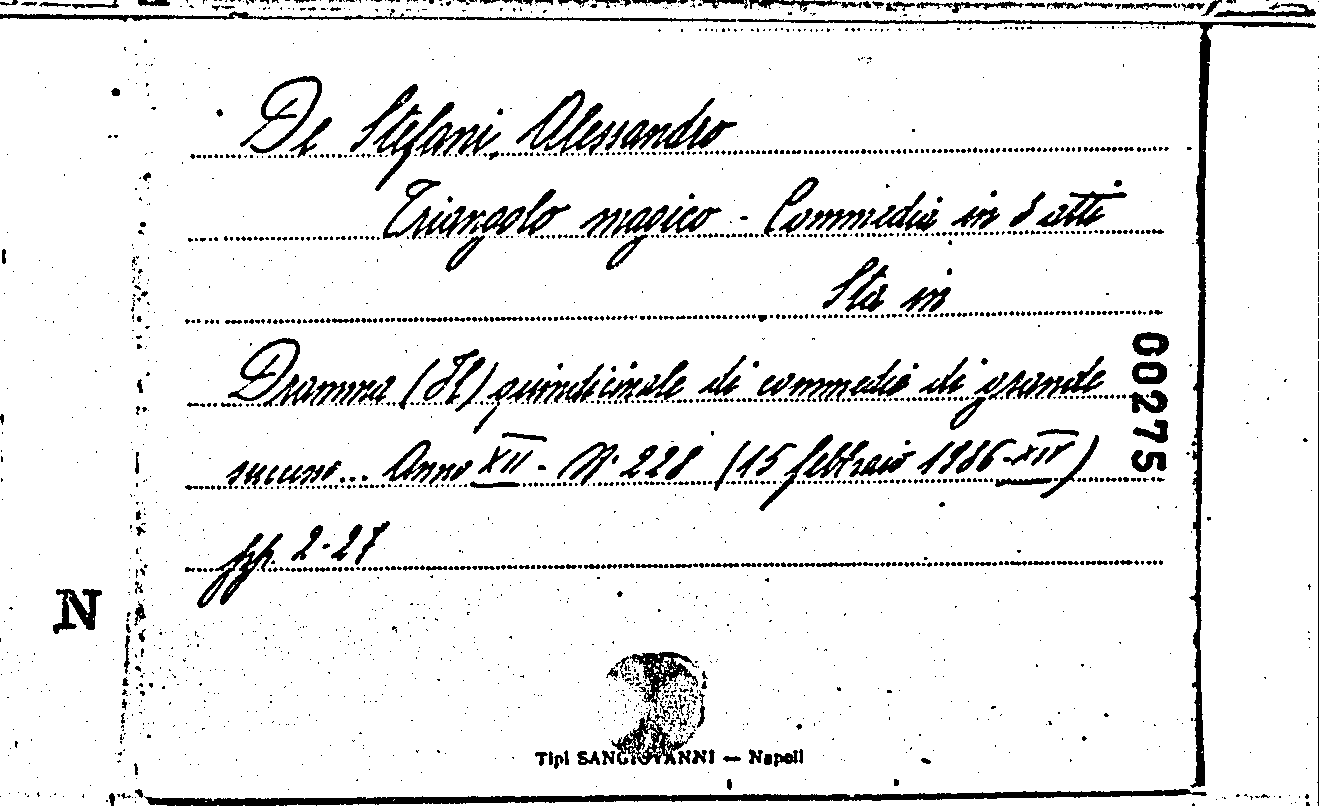 De Stefani, Alessandro
Triangolo magico - Commedia in 3 atti
Sta in
Dramma (Il) quindicinale di commedie di grande
succeno... Anno XII - N. 228 (15 febbraio 1936-XIV)
pp. 2-27
00275
N
Tipi SANGIOVANNI — Napoli